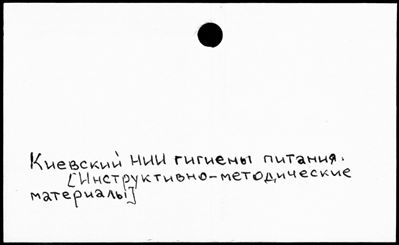 Киевский НИИ гигиены питания.
[Инструктивно-методические
материалы]